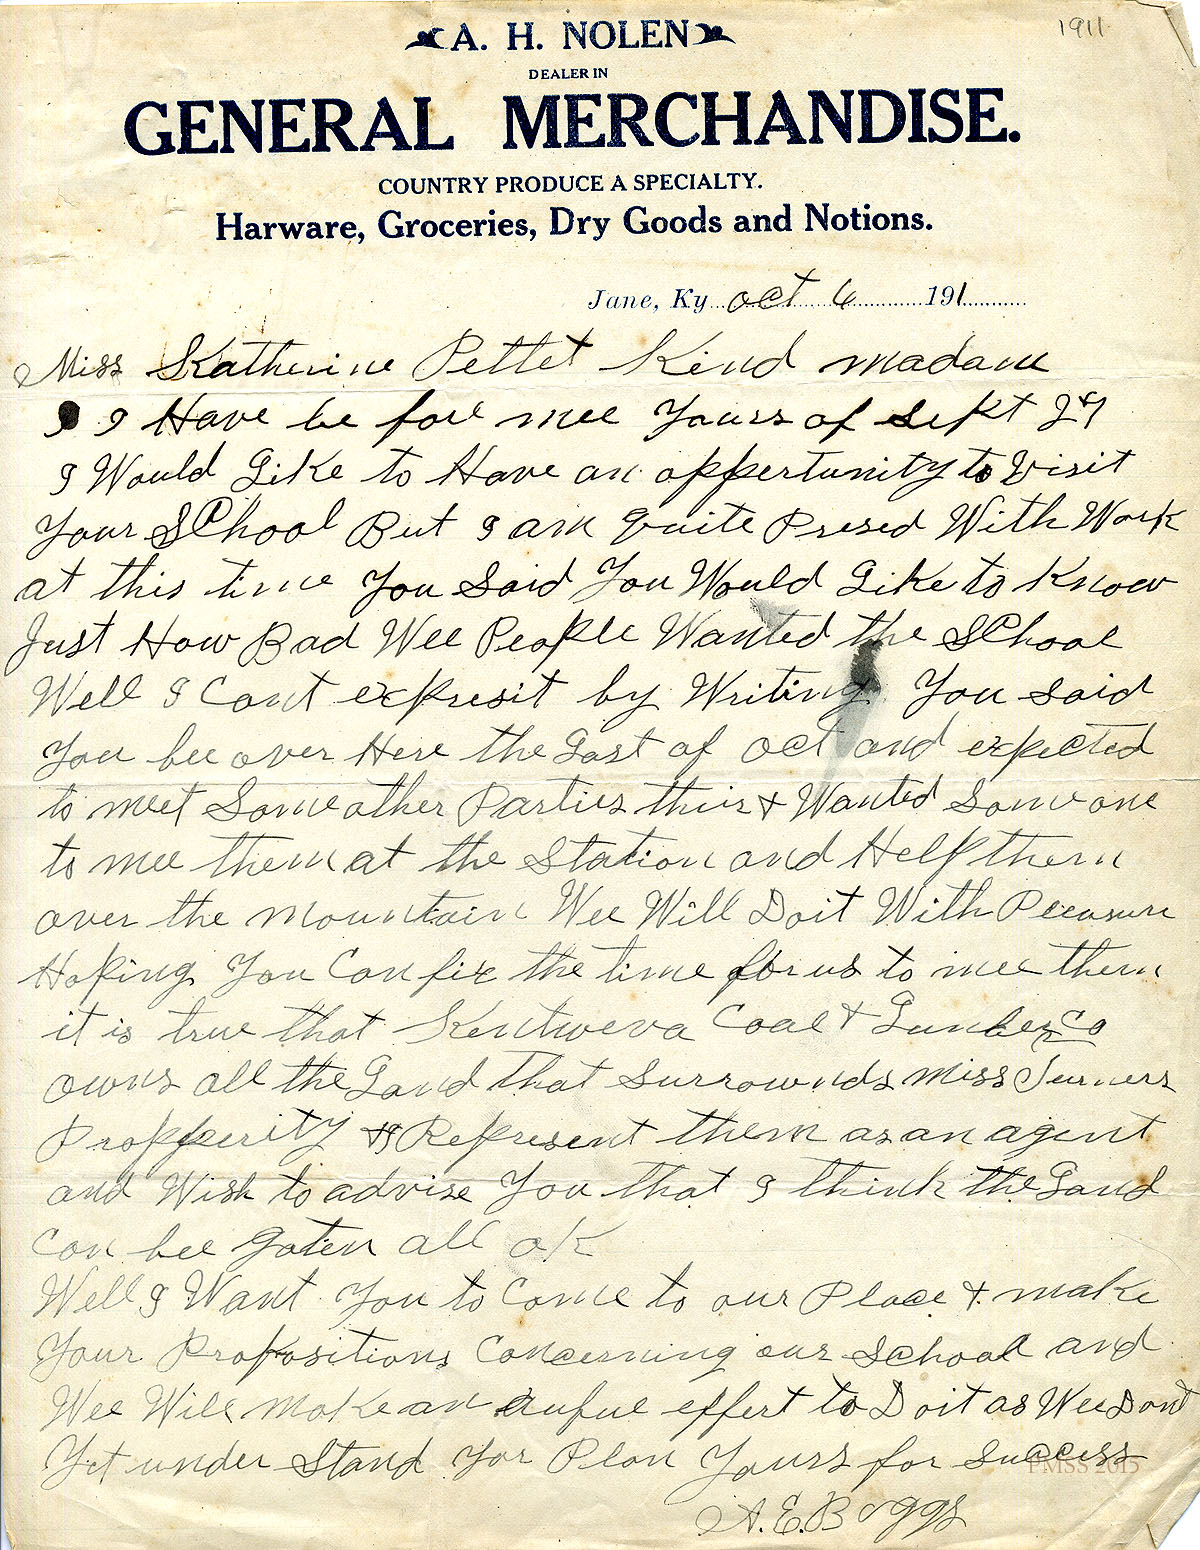 1911
A. H. NOLEN
DEALER IN
GENERAL MERCHANDISE.
COUNTRY PRODUCE A SPECIALTY.
Harware, Groceries, Dry Goods and Notions.
Jane, Ky oct 6 1911
Miss Katherine Pettet Kind madam
I Have be fore mee Yours of Sept
I Would Like to Have an oppertunity to Visit
Your School But I am quite Presed With Work
at this time You Said You Would Like to Know
Just How Bad Wee People Wanted the School
Well I Cant expresit by Writing You Said
You bee over Here the Last of oct and expected
to meet Some other Parties thir & Wanted Some one
to mee them at the Station and Help them
over the mountain Wee Will Doit With Pleasure
Hoping You Can fix the time for us to mee them
it is true that Kentweva Coal & Lumber Co
owns all the Land that Surrownds Miss Turners
Propperity & I Represent them as an agent
and Wish to advise You that I think the Land
Can bee Goten all ok
Well I Want You to Come to our Place & make
Your Propositions Concerning our School and
Wee Will make an auful effert to Doit as Wee Dont
Yet under Stand Yor Plan Yours for Success
PMSS 2015
A. E. Boggs